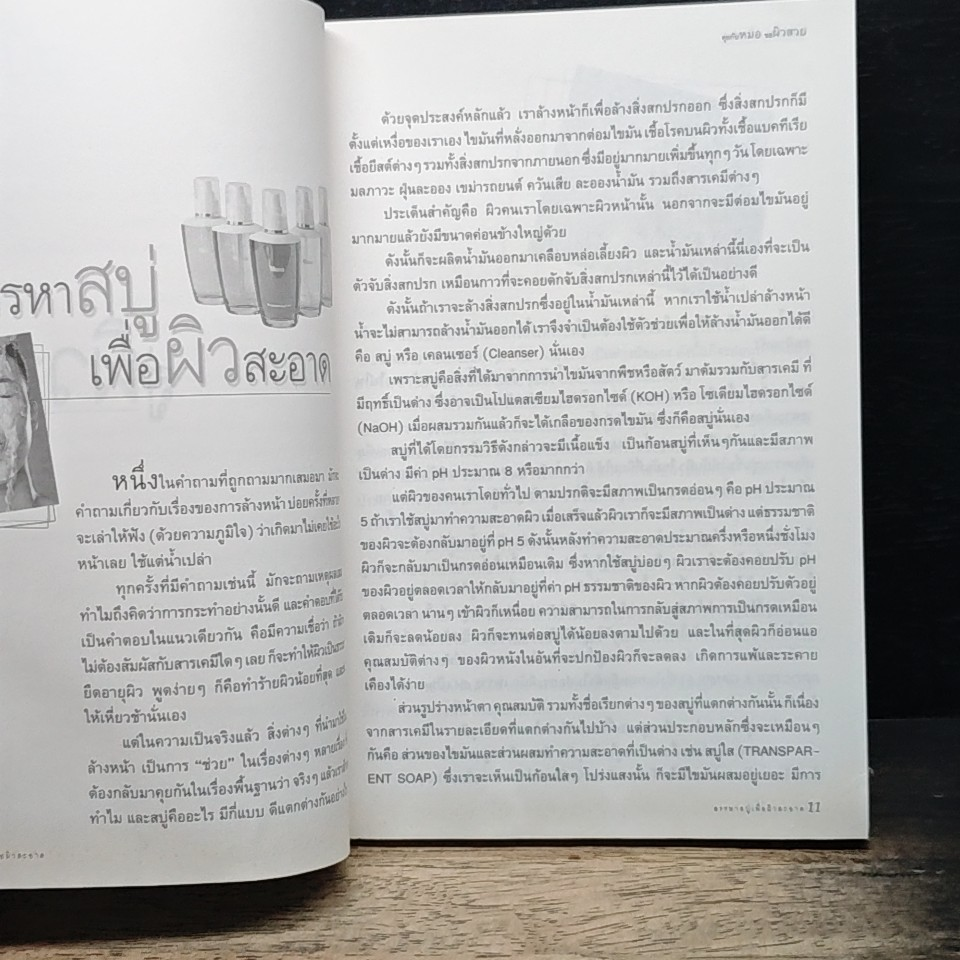 รหาสบู่
เพื่อผิวสะอาด
หนึ่งในคำถามที่ถูกถามมากเสมอมา
คำถามเกี่ยวกับเรื่องของการล้างหน้า บ่อยครั้งที่
จะเล่าให้ฟัง (ด้วยความภูมิใจ) ว่าเกิดมาไม่เคยใช้
หน้าเลย ใช้แต่น้ำเปล่า
ทุกครั้งที่มีคำถามเช่นนี้ มักจะถามเหตุผล
ทำไมถึงคิดว่าการกระทำอย่างนั้นดี และคำตอบที่ได้
เป็นคำตอบในแนวเดียวกัน คือมีความเชื่อว่า ถ้า
ไม่ต้องสัมผัสกับสารเคมีใดๆ เลย ก็จะทำให้ผิวเป็น
ยืดอายุผิว พูดง่ายๆ ก็คือทำร้ายผิวน้อยที่สุด
ให้เหี่ยวช้านั่นเอง
แต่ในความเป็นจริงแล้ว สิ่งต่างๆ ที่นำมาใช้
ล้างหน้า เป็นการ “ช่วย” ในเรื่องต่างๆ หลายเรื่อง
ต้องกลับมาคุยกันในเรื่องพื้นฐานว่า จริงๆ แล้วเรา
ทำไม และสบู่คืออะไร มีกี่แบบ ดีแตกต่างกันอย่าง
คุยกับหมอ ขอผิวสวย
ด้วยจุดประสงค์หลักแล้ว เราล้างหน้าก็เพื่อล้างสิ่งสกปรกออก ซึ่งสิ่งสกปรกก็มี
ตั้งแต่เหงื่อของเราเอง ไขมันที่หลั่งออกมาจากต่อมไขมัน เชื้อโรคบนผิวทั้งเชื้อแบคทีเรีย
เชื้อยีสต์ต่างๆ รวมทั้งสิ่งสกปรกจากภายนอก ซึ่งมีอยู่มากมายเพิ่มขึ้นทุกๆ วัน โดยเฉพาะ
มลภาวะ ฝุ่นละออง เขม่ารถยนต์ ควันเสีย ละอองน้ำมัน รวมถึงสารเคมีต่างๆ
ประเด็นสำคัญคือ ผิวคนเราโดยเฉพาะผิวหน้านั้น นอกจากจะมีต่อมไขมันอยู่
มากมายแล้วยังมีขนาดค่อนข้างใหญ่ด้วย
ดังนั้นก็จะผลิตน้ำมันออกมาเคลือบหล่อเลี้ยงผิว และน้ำมันเหล่านี้นี่เองที่จะเป็น
ตัวจับสิ่งสกปรก เหมือนกาวที่จะคอยดักจับสิ่งสกปรกเหล่านี้ไว้ได้เป็นอย่างดี
ดังนั้นถ้าเราจะล้างสิ่งสกปรกซึ่งอยู่ในน้ำมันเหล่านี้ หากเราใช้น้ำเปล่าล้างหน้า
น้ำจะไม่สามารถล้างน้ำมันออกได้ เราจึงจำเป็นต้องใช้ตัวช่วยเพื่อให้ล้างน้ำมันออกได้ดี
คือ สบู่ หรือ เคลนเซอร์ (Cleanser) นั่นเอง
เพราะสบู่คือสิ่งที่ได้มาจากการนำไขมันจากพืชหรือสัตว์ มาต้มรวมกับสารเคมี ที่
มีฤทธิ์เป็นด่าง ซึ่งอาจเป็นโปแตสเซียมไฮดรอกไซด์ (KOH) หรือ โซเดียมไฮดรอกไซด์
(NaOH) เมื่อผสมรวมกันแล้วก็จะได้เกลือของกรดไขมัน ซึ่งก็คือสบู่นั่นเอง
สบู่ที่ได้โดยกรรมวิธีดังกล่าวจะมีเนื้อแข็ง เป็นก้อนสบู่ที่เห็นๆ กันและมีสภาพ
เป็นด่าง มีค่า pH ประมาณ 8 หรือมากกว่า
แต่ผิวของคนเราโดยทั่วไป ตามปรกติจะมีสภาพเป็นกรดอ่อนๆ คือ pH ประมาณ
5 ถ้าเราใช้สบู่มาทำความสะอาดผิว เมื่อเสร็จแล้วผิวเราก็จะมีสภาพเป็นด่าง แต่ธรรมชาติ
ของผิวจะต้องกลับมาอยู่ที่ pH 5 ดังนั้นหลังทำความสะอาดประมาณครึ่งหรือหนึ่งชั่วโมง
ผิวก็จะกลับมาเป็นกรดอ่อนเหมือนเดิม ซึ่งหากใช้สบู่บ่อยๆ ผิวเราจะต้องคอยปรับ pH
ของผิวอยู่ตลอดเวลาให้กลับมาอยู่ที่ค่า pH ธรรมชาติของผิว หากผิวต้องคอยปรับตัวอยู่
ตลอดเวลา นานๆ เข้าผิวก็เหนื่อย ความสามารถในการกลับสู่สภาพการเป็นกรดเหมือน
เดิมก็จะลดน้อยลง ผิวก็จะทนต่อสบู่ได้น้อยลงตามไปด้วย และในที่สุดผิวก็อ่อนแอ
คุณสมบัติต่างๆ ของผิวหนังในอันที่จะปกป้องผิวก็จะลดลง เกิดการแพ้และระคาย
เคืองได้ง่าย
ส่วนรูปร่างหน้าตา คุณสมบัติ รวมทั้งชื่อเรียกต่างๆ ของสบู่ที่แตกต่างกันนั้น ก็เนื่อง
จากสารเคมีในรายละเอียดที่แตกต่างกันไปบ้าง แต่ส่วนประกอบหลักซึ่งจะเหมือนๆ
กันคือ ส่วนของไขมันและส่วนผสมทำความสะอาดที่เป็นด่าง เช่น สบู่ใส (TRANSPAR-
ENT SOAP) ซึ่งเราจะเห็นเป็นก้อนใสๆ โปร่งแสงนั้น ก็จะมีไขมันผสมอยู่เยอะ มีการ
สรรหาสบู่เพื่อผิวสะอาด 11